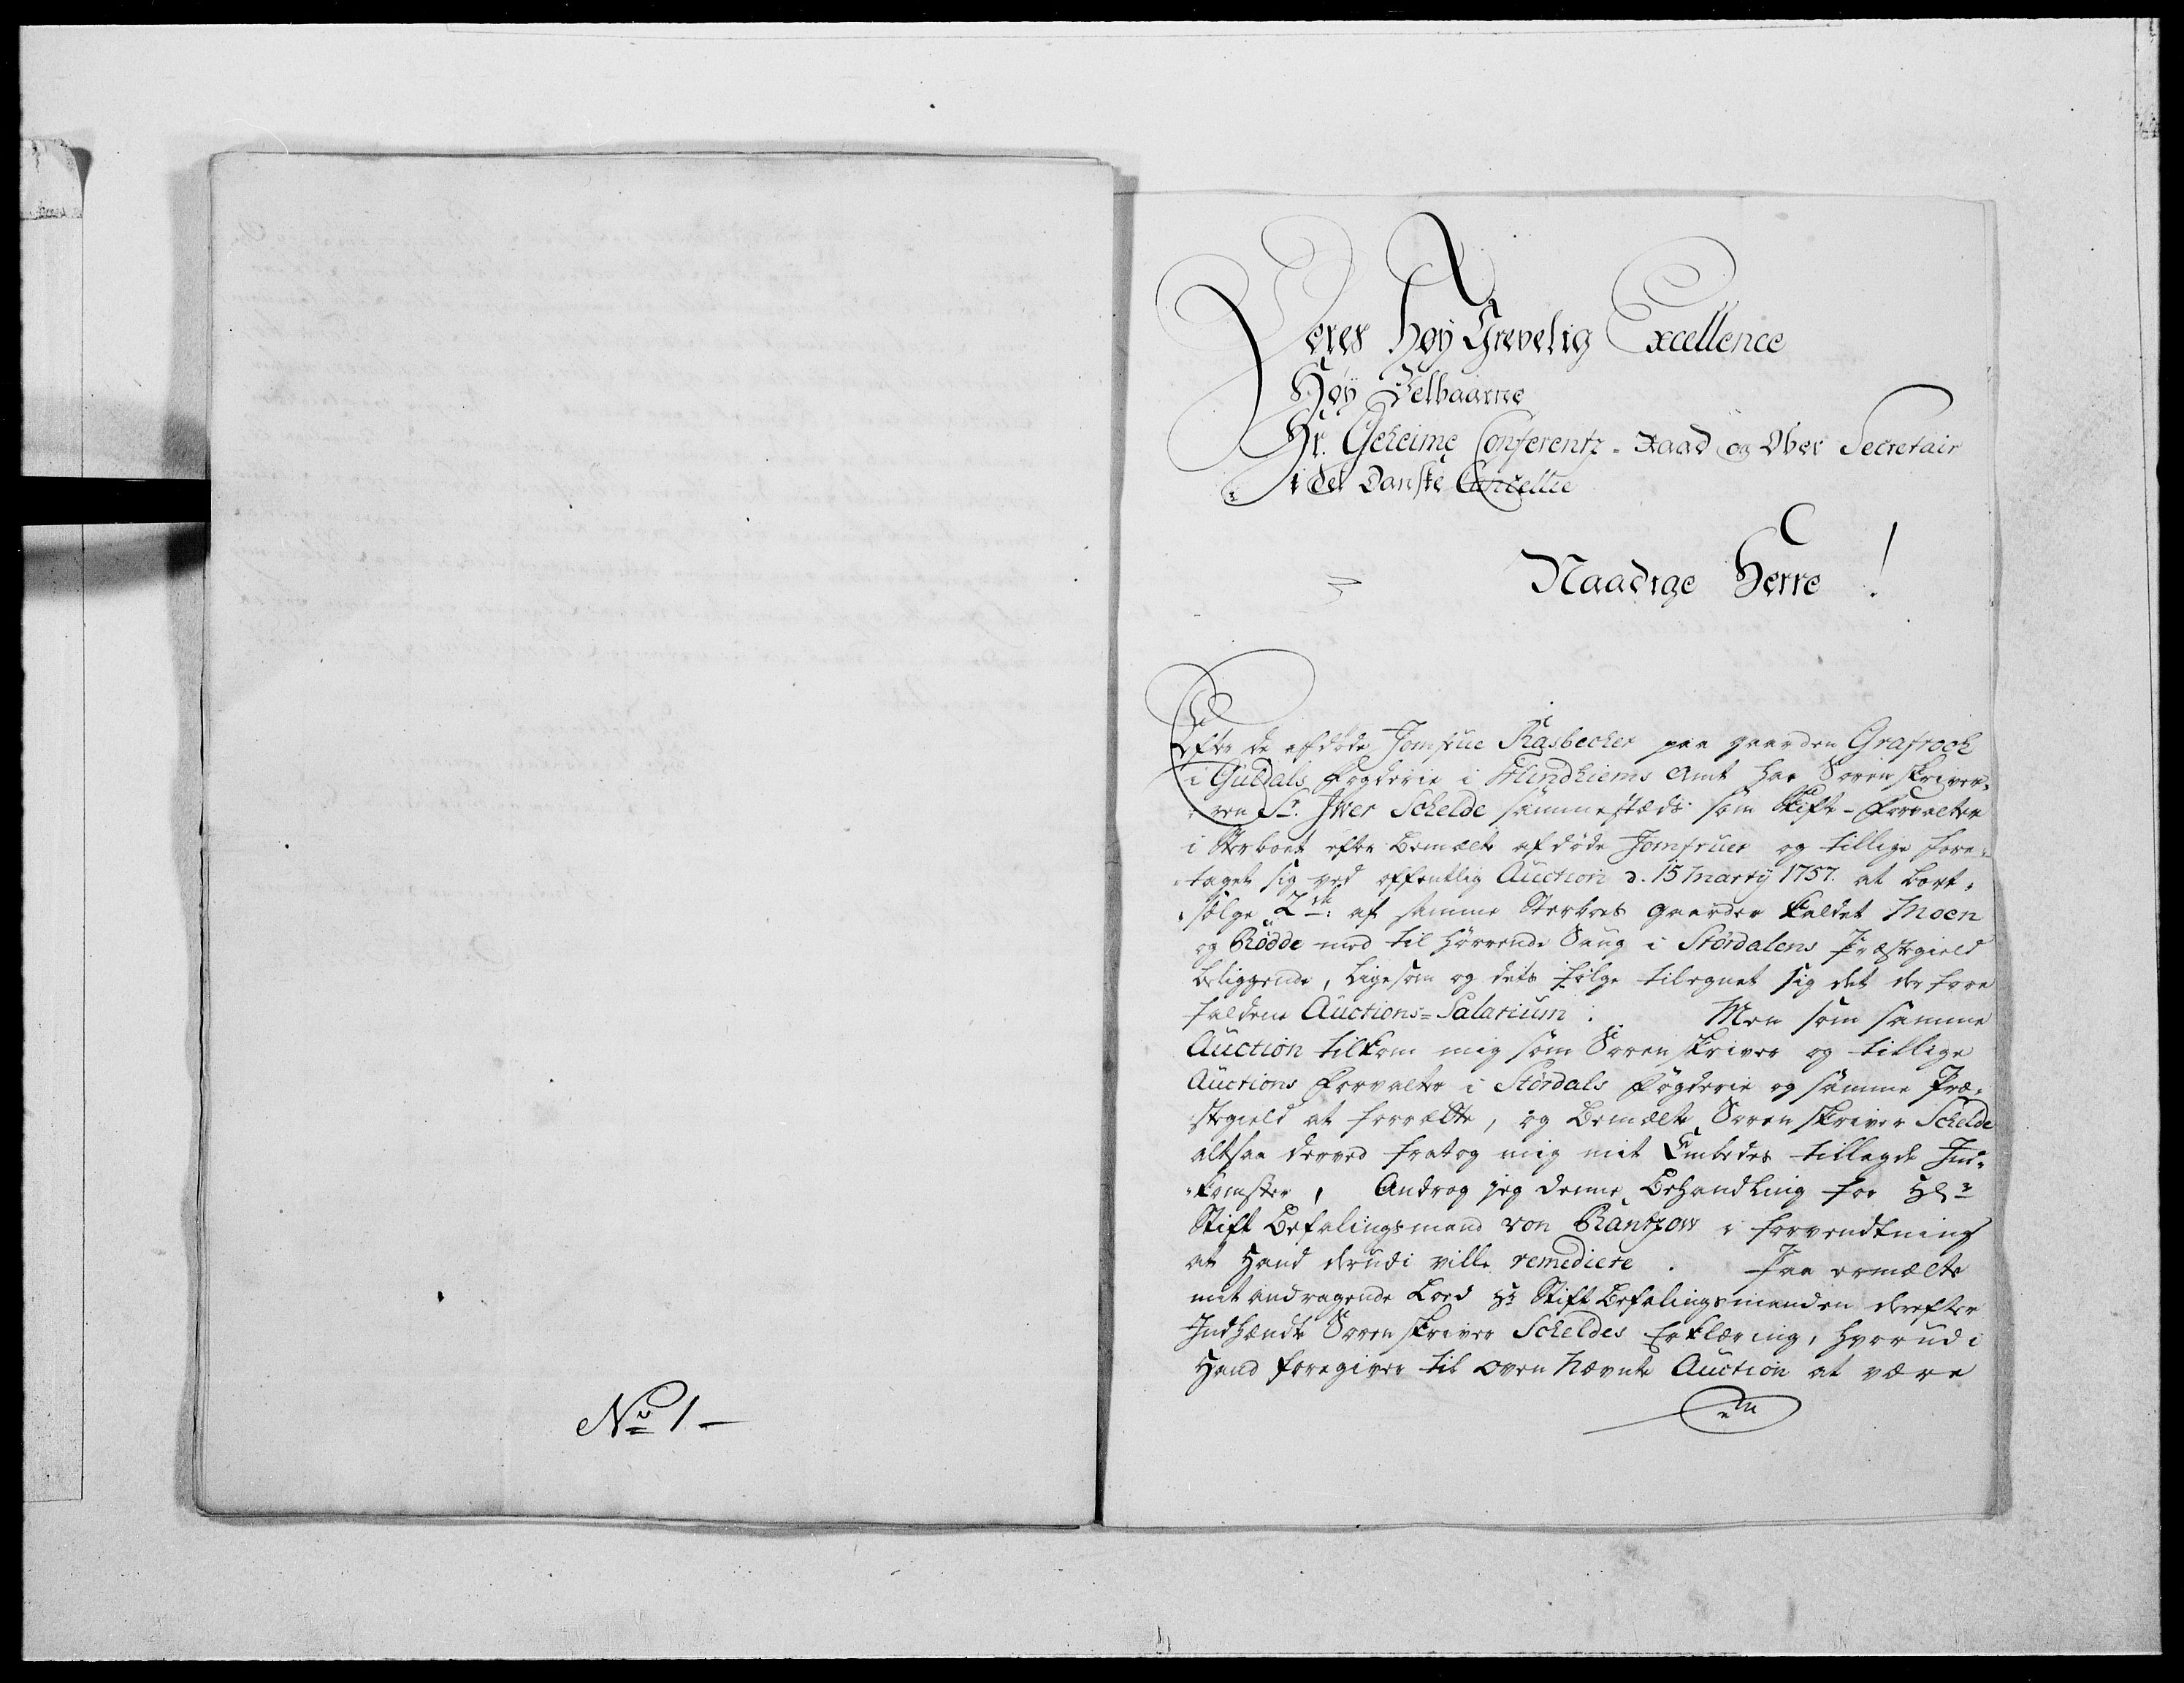 No 1-
Deres Høy Grevelig Excellence
Høy Velbaarne
Hr. Geheime Conferentz-Raad og Ober Secretair
i det Danske Cancellie
Naadige Herre!
Efter de afdøde Jomfrue Rasbecher paa gaarden Grafroch
i Guldals Fogderie i Trundhiems Amt har Sorenskriver-
ren Sr. Iver Schelde sammestæds som Skifte-Forvalter
i Sterboet efter bemælte afdøde Jomfruer og tillige fore-
taget sig ved offentlig Auction d. 15 Martij 1757. at bort-
sælge 2 stk: af samme Sterboes gaarder kaldet Moen
og Rødde med til hørrende Saug i Størdalens Præstegield
beliggende, ligesom og dets følge tilegnet sig det der fore
faldene Auctions-Salarium. Men som samme
Auction tilkom mig som Sorenskriver og tillige
Auctions Forvalter i Størdals Fogderie og samme Præ-
stegield at forrætte, og bemælte Sorenskriver Schelde
altsaa derved fratog mig mit Embedes tillagde Ind-
komster, Androg jeg denne behandling for Hr
Stift Befalingsmand von Rantzow i forvendtning
at Hand derudi ville remediere. Paa ermælte
mit andragende lod Hr Stift Befalingsmanden derefter
Indhændte Sorenskriver Scheldes Erklæring, hvorudi
Hand foregiver til oven Nævnte Auction at være